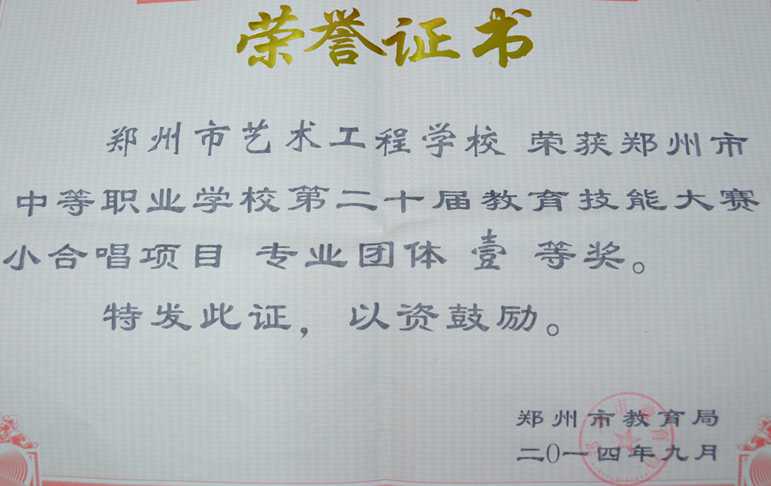 荣誉证书
郑州市艺术工程学校 荣获郑州市
中等职业学校第二十届教育技能大赛
小合唱项目 专业团体 壹 等奖。
特发此证，以资鼓励。
郑州市教育局
二0一四年九月